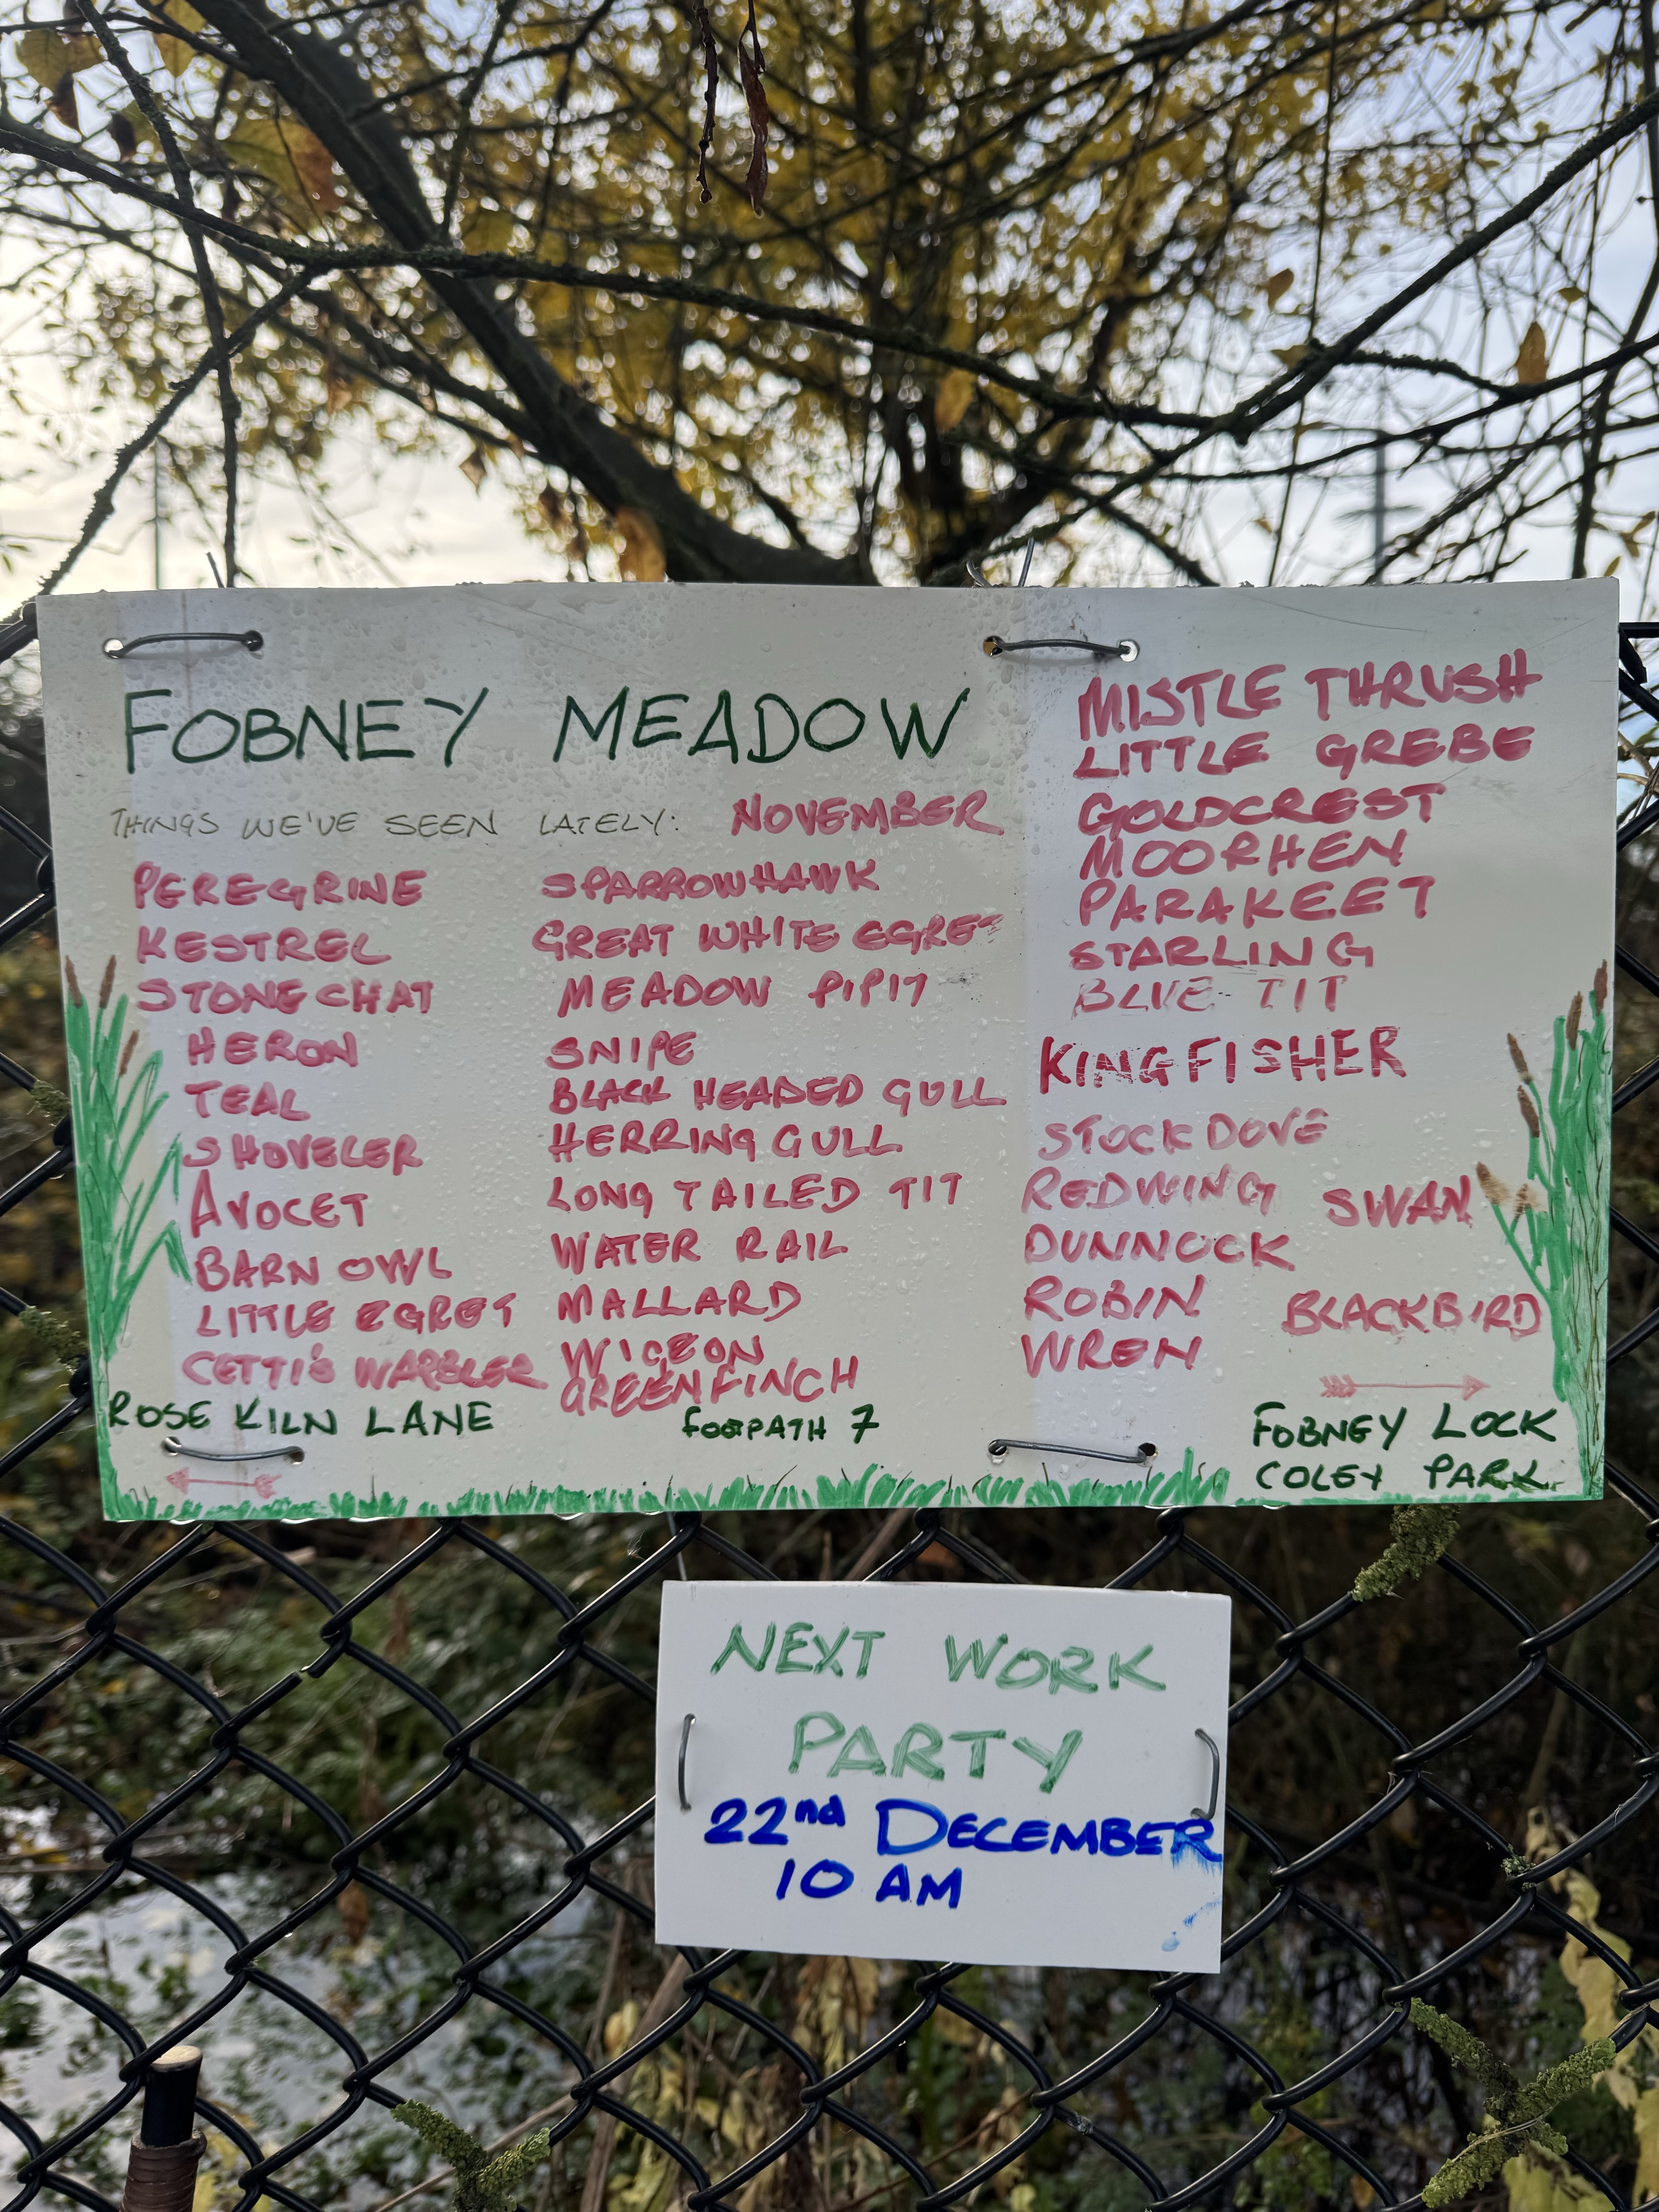 FOBNEY MEADOW
THINGS WE'VE SEEN LATELY: NOVEMBER
PEREGRINE
KESTREL
STONECHAT
HERON
TEAL
SHOVELER
AVOCET
BARN OWL
LITTLE EGRET
CETTI'S WARBLER
SPARROWHAWK
GREAT WHITE EGRET
MEADOW PIPIT
SNIPE
BLACK HEADED GULL
HERRING GULL
LONG TAILED TIT
WATER RAIL
MALLARD
WIGEON
GREENFINCH
MISTLE THRUSH
LITTLE GREBE
GOLDCREST
MOORHEN
PARAKEET
STARLING
BLUE TIT
KINGFISHER
STOCK DOVE
REDWING SWAN
DUNNOCK
ROBIN BLACKBIRD
WREN
ROSE KILN LANE
FOOTPATH 7
FOBNEY LOCK
COLEY PARK
NEXT WORK
PARTY
22nd DECEMBER
10 AM